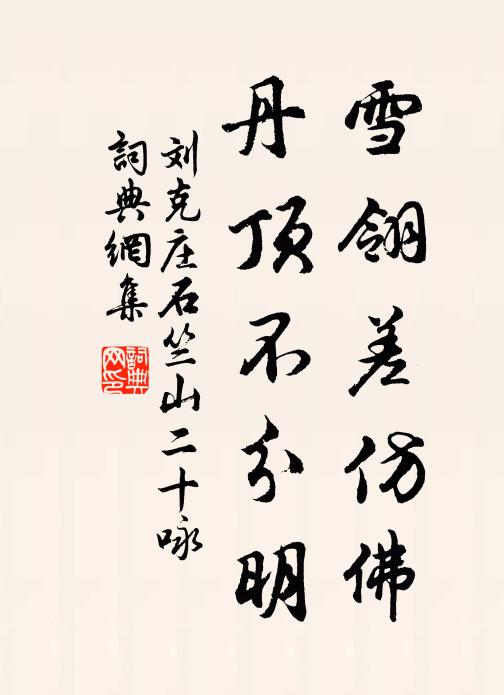 雪翎差仿佛
丹顶不分明
刘克庄石竺山二十咏
詞典網集
詞典网印